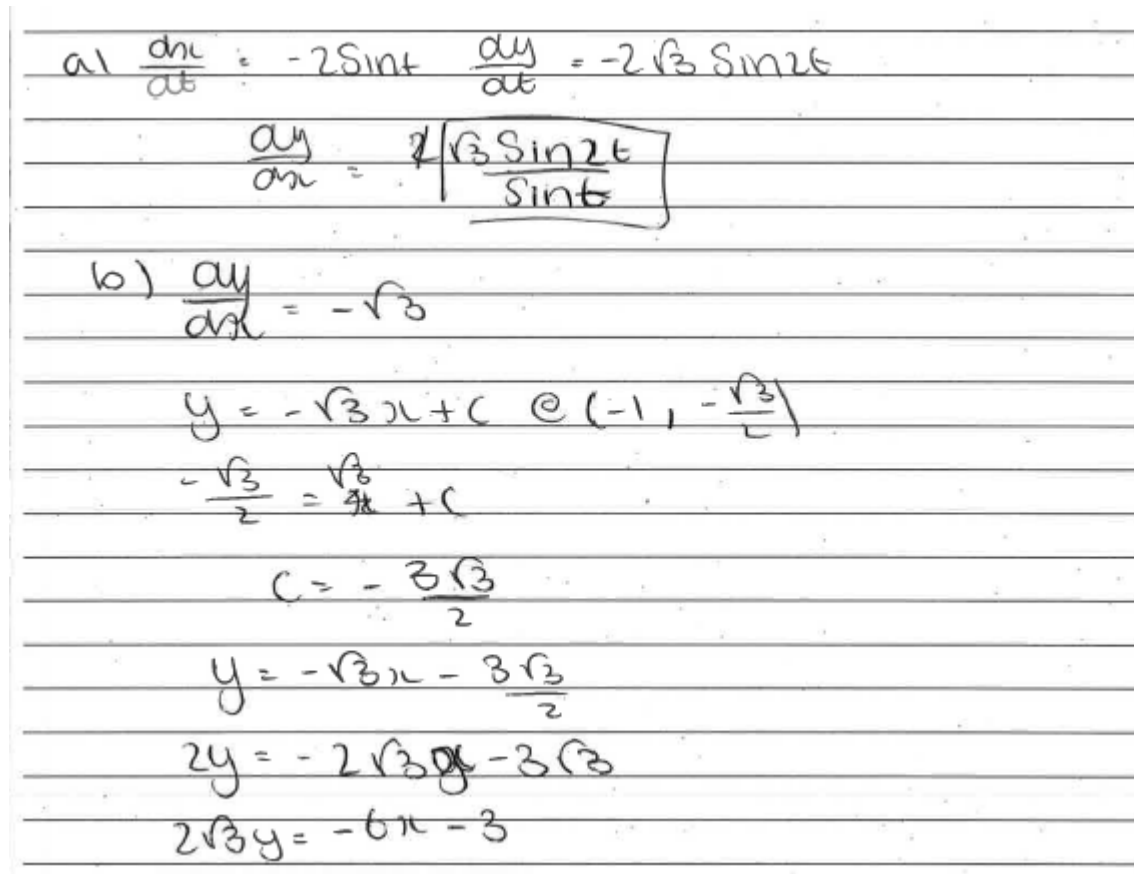 a) dx/dt = -2Sint dy/dt = -2√3 Sin2t
dy/dx = √3 Sin2t / Sint
b) dy/dx = -√3
y = -√3x + C @ (-1, -√3/2)
-√3/2 = √3 + C
C = -3√3/2
y = -√3x - 3√3/2
2y = -2√3x - 3√3
2√3y = -6x - 3